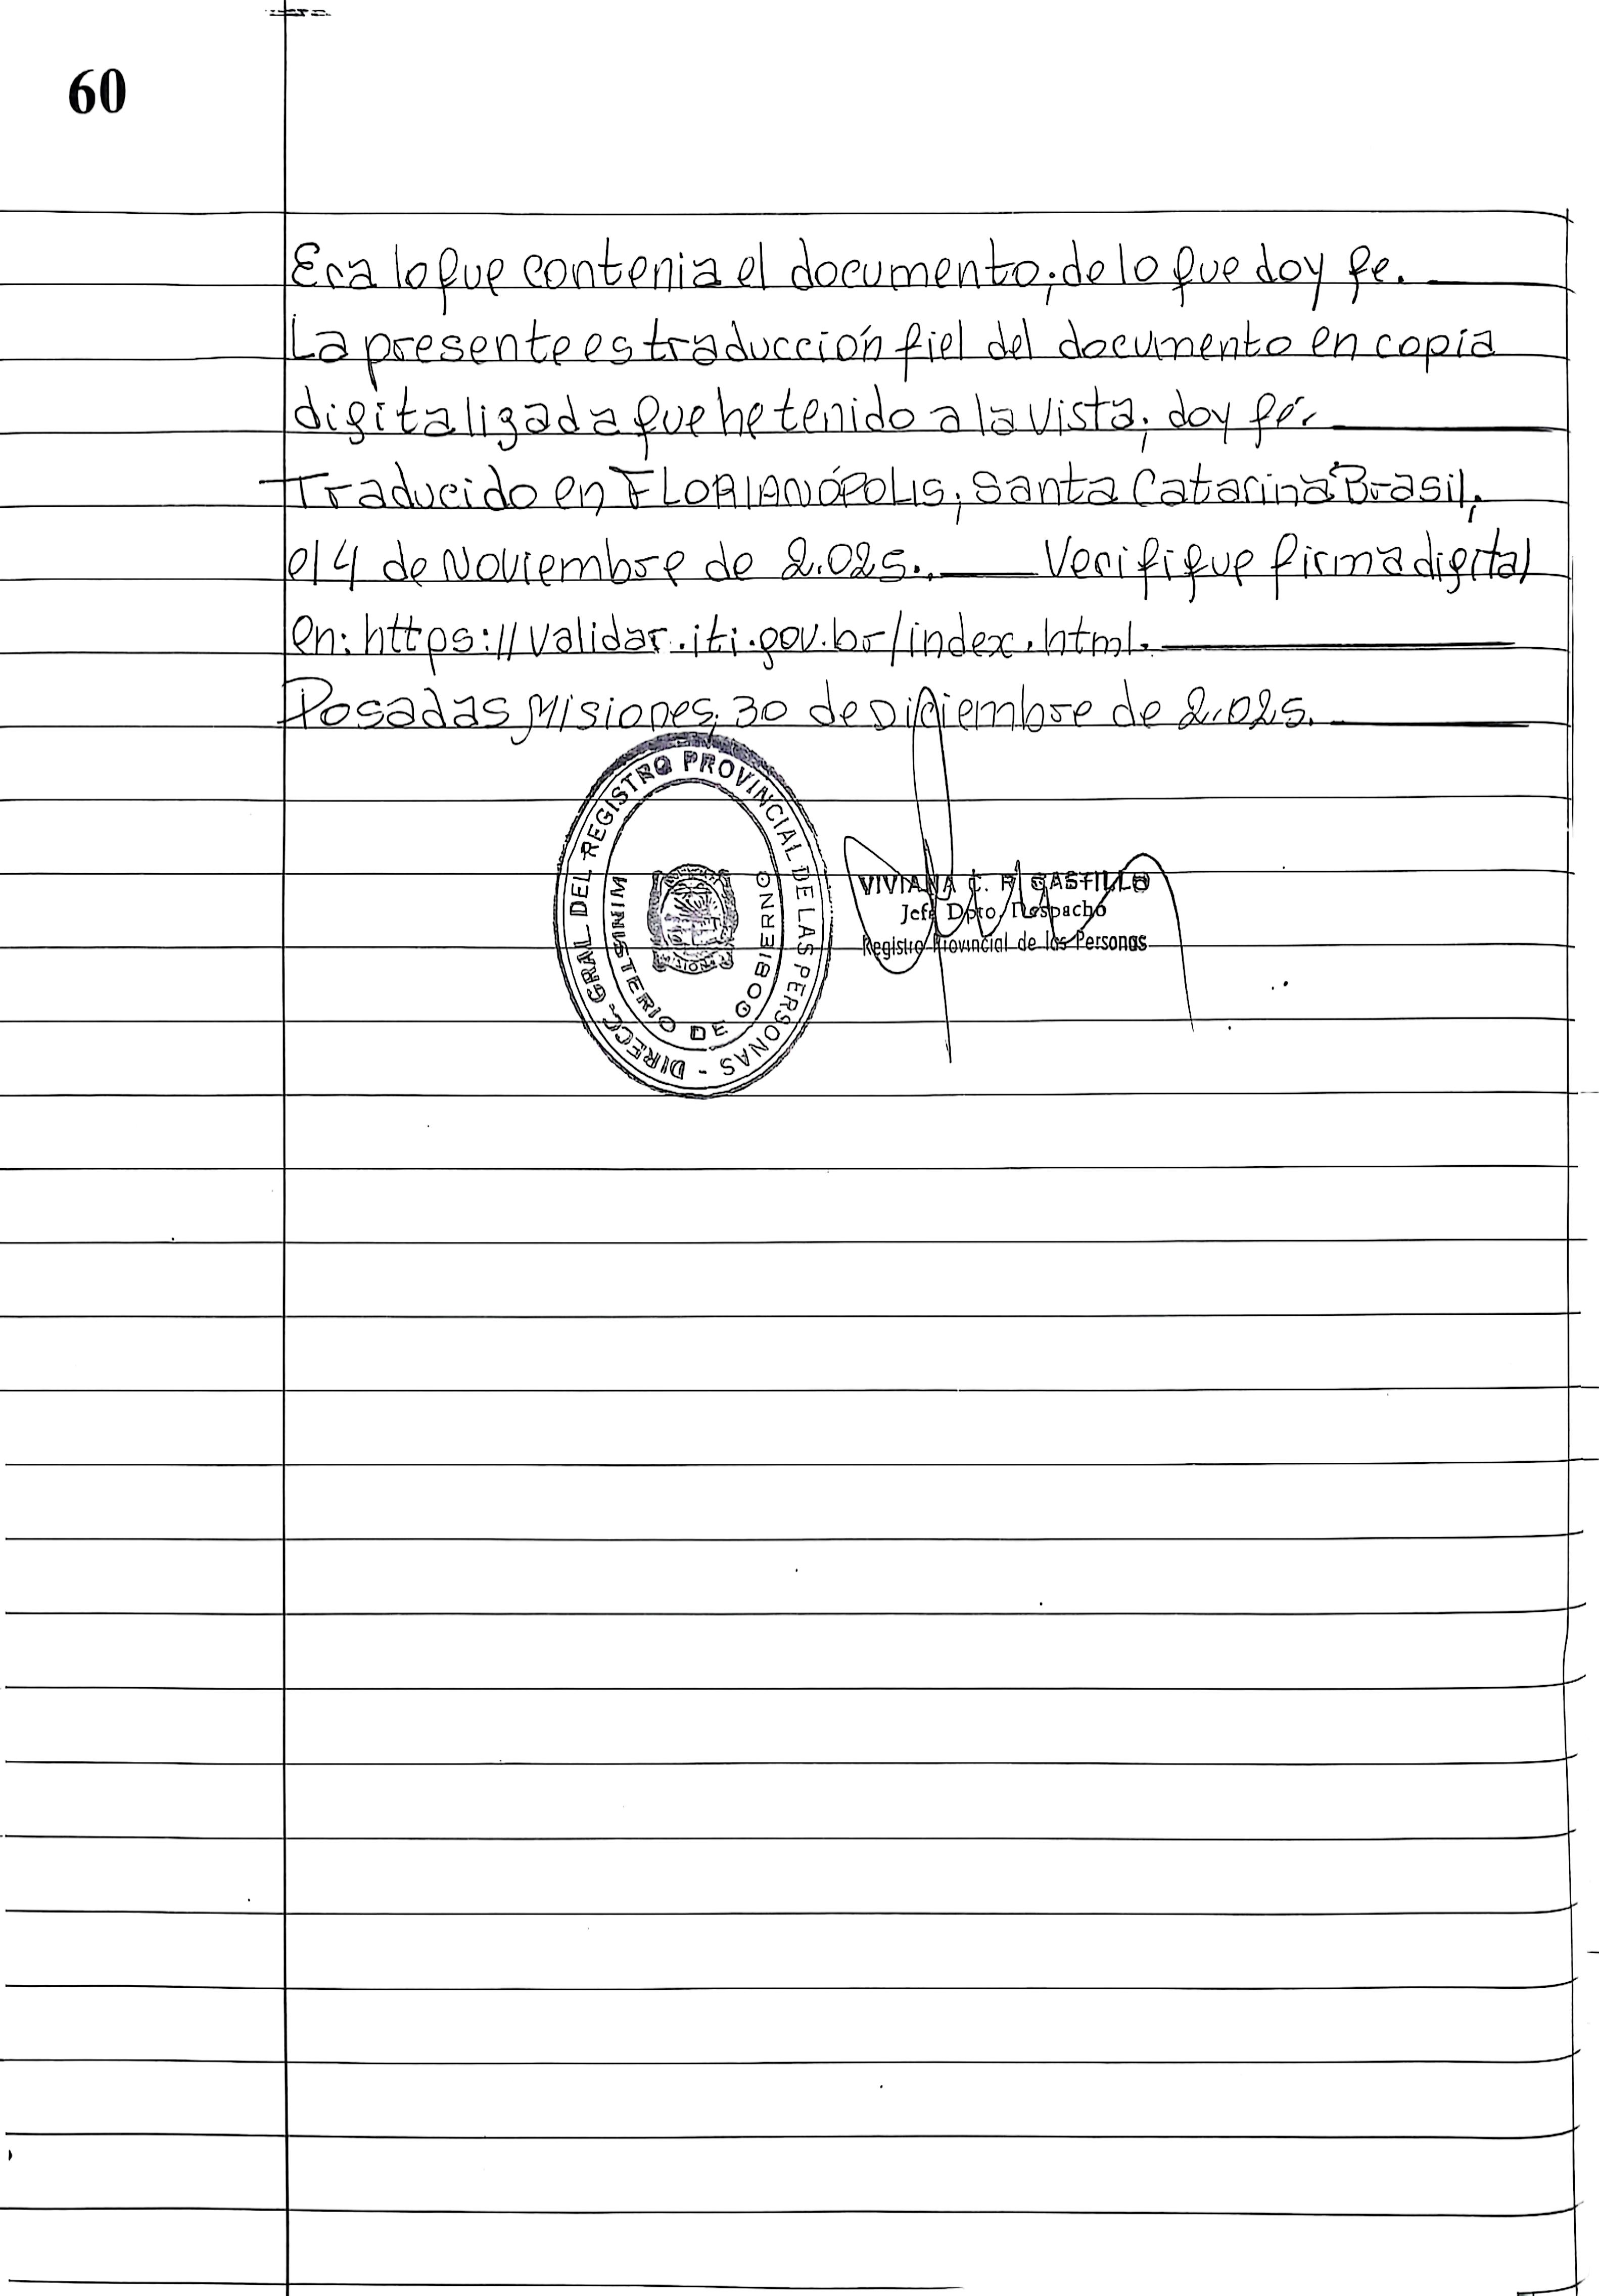 60
Era lo que contenia el documento; de lo que doy fe.
La presente es traducción fiel del documento en copia
digitalizada que he tenido a la vista; doy fé.
Traducido en FLORIANÓPOLIS; Santa Catarina Brasil,
el 4 de Noviembre de 2.025. Verifique firma digital
en: https://validar.iti.gov.br/index.html.
Posadas Misiones, 30 de Diciembre de 2.025.
DIRECC. GRAL DEL REGISTRO PROVINCIAL DE LAS PERSONAS -
MINISTERIO DE GOBIERNO
MISIONES
VIVIANA C. R. CASTILLO
Jefe Dpto. Despacho
Registro Provincial de las Personas